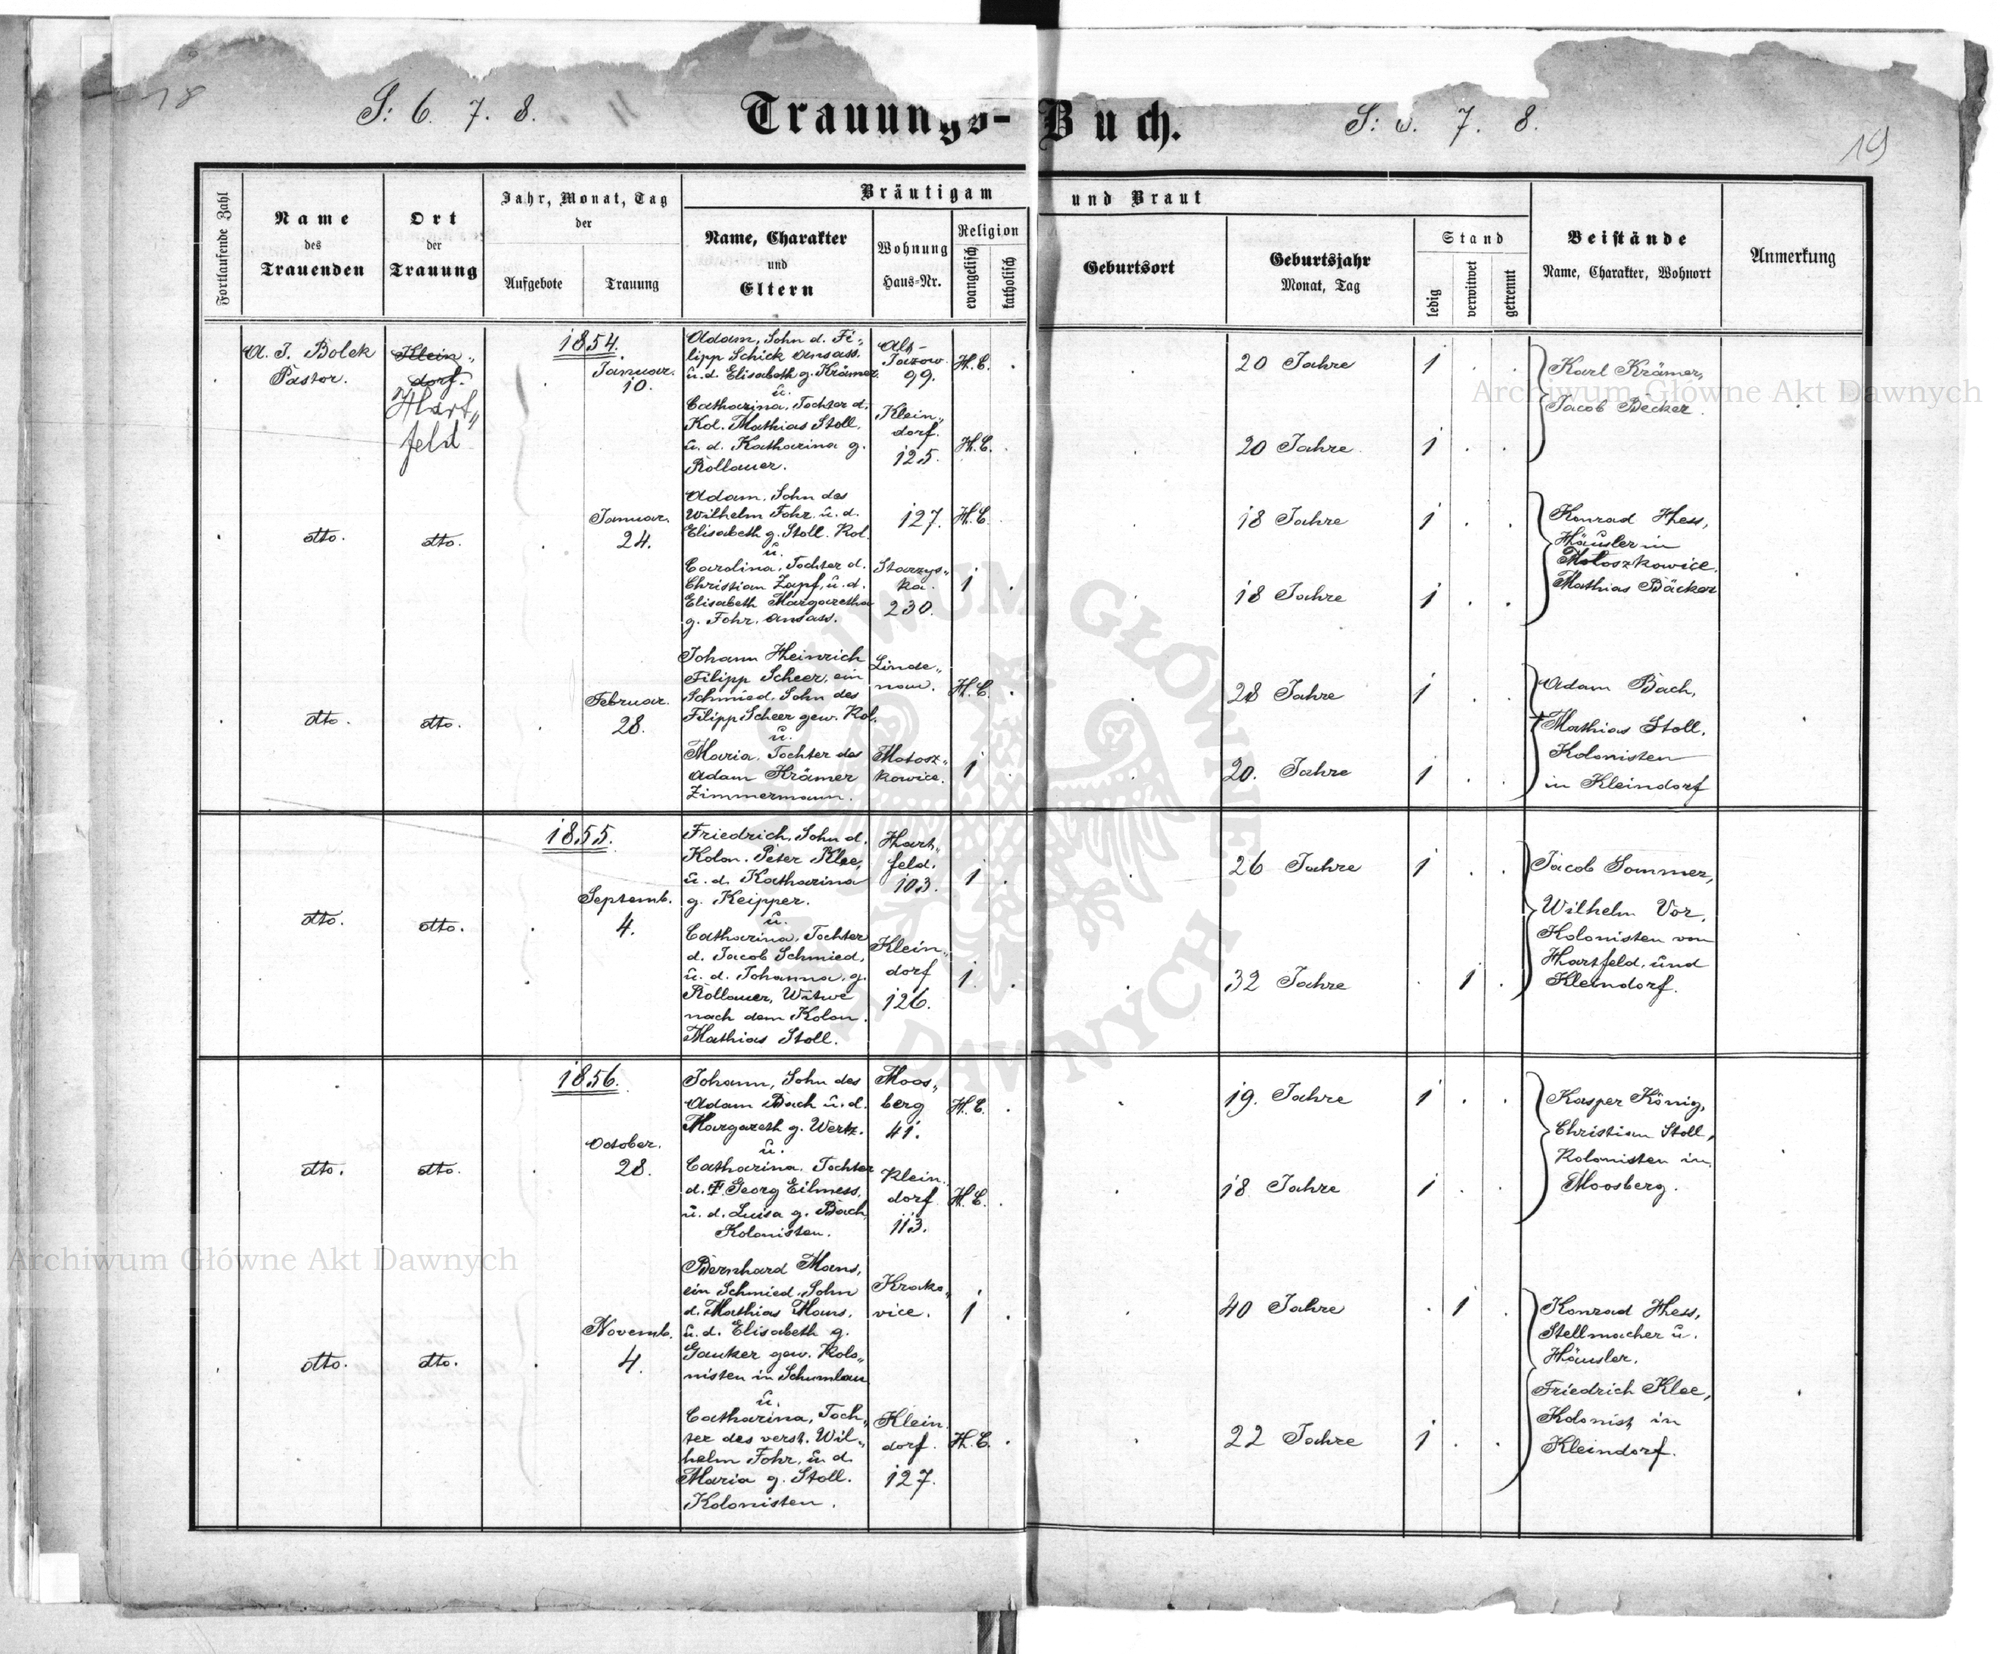 18
S: 6. 7. 8.
Trauungs-Buch.
S: 6. 7. 8.
19
Fortlaufende Zahl
Name
des
Trauenden
Ort
der
Trauung
Jahr, Monat, Tag
der
Aufgebote
Trauung
Bräutigam und Braut
Name, Charakter
und
Eltern
Wohnung
Haus=Nr.
Religion
evangelisch
katholisch
Geburtsort
Geburtsjahr
Monat, Tag
Stand
ledig
verwitwet
getrennt
Beistände
Name, Charakter, Wohnort
Anmerkung
1854.
A. J. Bolek
Pastor.
Klein„
dorf.
Hart„
feld
Januar.
10.
Adam, Sohn d. Fi„
lipp Schick Ansass.
u. d. Elisabeth g. Krämer.
u.
Catharina, Tochter d.
Kol. Mathias Stoll,
u. d. Katharina g.
Rollauer.
Alt-
Jazow
99.
Klein„
dorf.
125.
H.C.
H.C.
20 Jahre
20 Jahre
1
1
Karl Krämer,
Jacob Becker.
dto.
dto.
Januar.
24.
Adam, Sohn des
Wilhelm Fohr u. d.
Elisabeth g. Stoll. Kol.
u.
Carolina, Tochter d.
Christian Zapf, u. d.
Elisabeth Margaretha
g. Fohr. Ansass.
127.
Starzys„
ka.
230.
H.C.
1
18 Jahre
18 Jahre
1
1
Konrad Hess,
Häusler in
Moloszkowice.
Mathias Bäcker
dto.
dto.
Februar.
28.
Johann Heinrich
Filipp Scheer, ein
Schmied, Sohn des
Filipp Scheer gew. Kol.
u.
Maria, Tochter des
Adam Krämer
Zimmermann.
Linde„
nau.
Molosz„
kowice.
H.C.
1
28 Jahre
20. Jahre
1
1
Adam Bach,
Mathias Stoll,
Kolonisten
in Kleindorf
1855.
dto.
dto.
Septemb.
4.
Friedrich, Sohn d.
Kolon. Peter Klee,
u. d. Katharina
g. Keipper.
u.
Catharina, Tochter
d. Jacob Schmied,
u. d. Johanna, g.
Rollauer, Witwe
nach dem Kolon.
Mathias Stoll.
Hart„
feld.
103.
Klein„
dorf
126.
1
1.
26 Jahre
32 Jahre
1
1
Jacob Sommer,
Wilhelm Vor,
Kolonisten von
Hartfeld, und
Kleindorf.
1856.
dto.
dto.
October.
28.
Johann, Sohn des
Adam Bach u. d.
Margareth g. Wertz.
u.
Catharina, Tochter
d. F Georg Eilmess,
u. d. Luisa g. Bach,
Kolonisten.
Moos„
berg
41.
Klein.
dorf
113.
H.C.
H.C.
19. Jahre
18 Jahre
1
1
Kasper König,
Christian Stoll,
Kolonisten in
Moosberg.
dto.
dto.
Novemb.
4.
Bernhard Mans,
ein Schmied, Sohn
d. Mathias Mans,
u. d. Elisabeth g.
Gauker gew. Kolo„
nisten in Schumlau
u.
Catharina, Toch„
ter des verst. Wil„
helm Fohr, u. d.
Maria g. Stoll.
Kolonisten.
Krako„
vice.
Klein.
dorf.
127.
1
H.C.
40 Jahre
22 Jahre
1
1
Konrad Hess,
Stellmacher u.
Häusler.
Friedrich Klee,
Kolonist in
Kleindorf.
Archiwum Główne Akt Dawnych
Archiwum Główne Akt Dawnych
ARCHIWUM GŁÓWNE AKT DAWNYCH